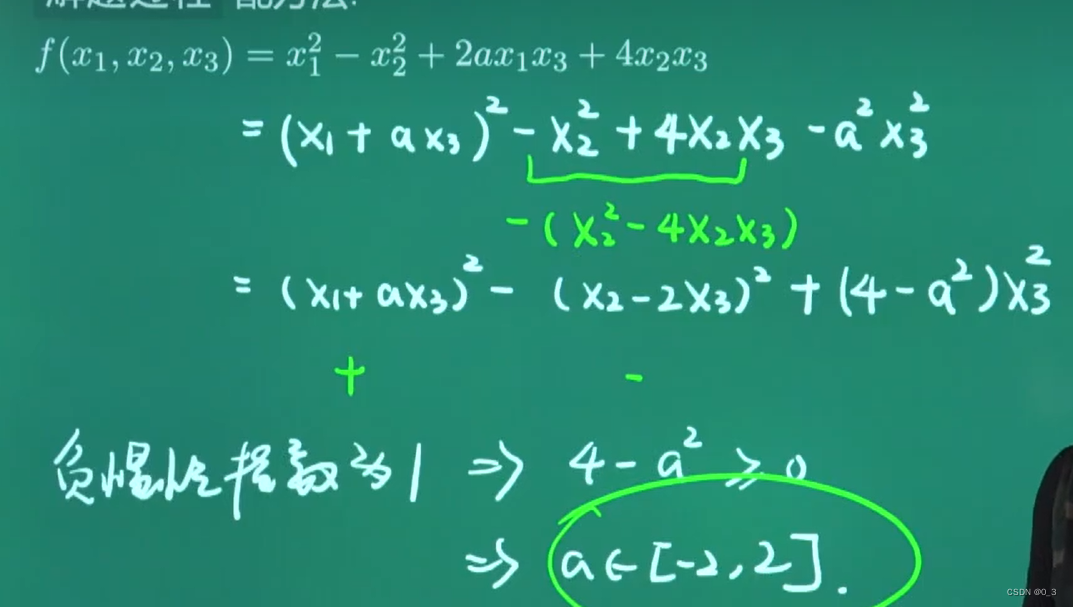 解题过程 配方法:
f(x₁, x₂, x₃) = x₁² − x₂² + 2ax₁x₃ + 4x₂x₃
= (x₁ + ax₃)² − x₂² + 4x₂x₃ − a²x₃²
−(x₂² − 4x₂x₃)
= (x₁ + ax₃)² − (x₂ − 2x₃)² + (4 − a²)x₃²
+ −
负惯性指数为1 ⇒ 4 − a² ≥ 0
⇒ a ∈ [−2, 2].
CSDN @0_3